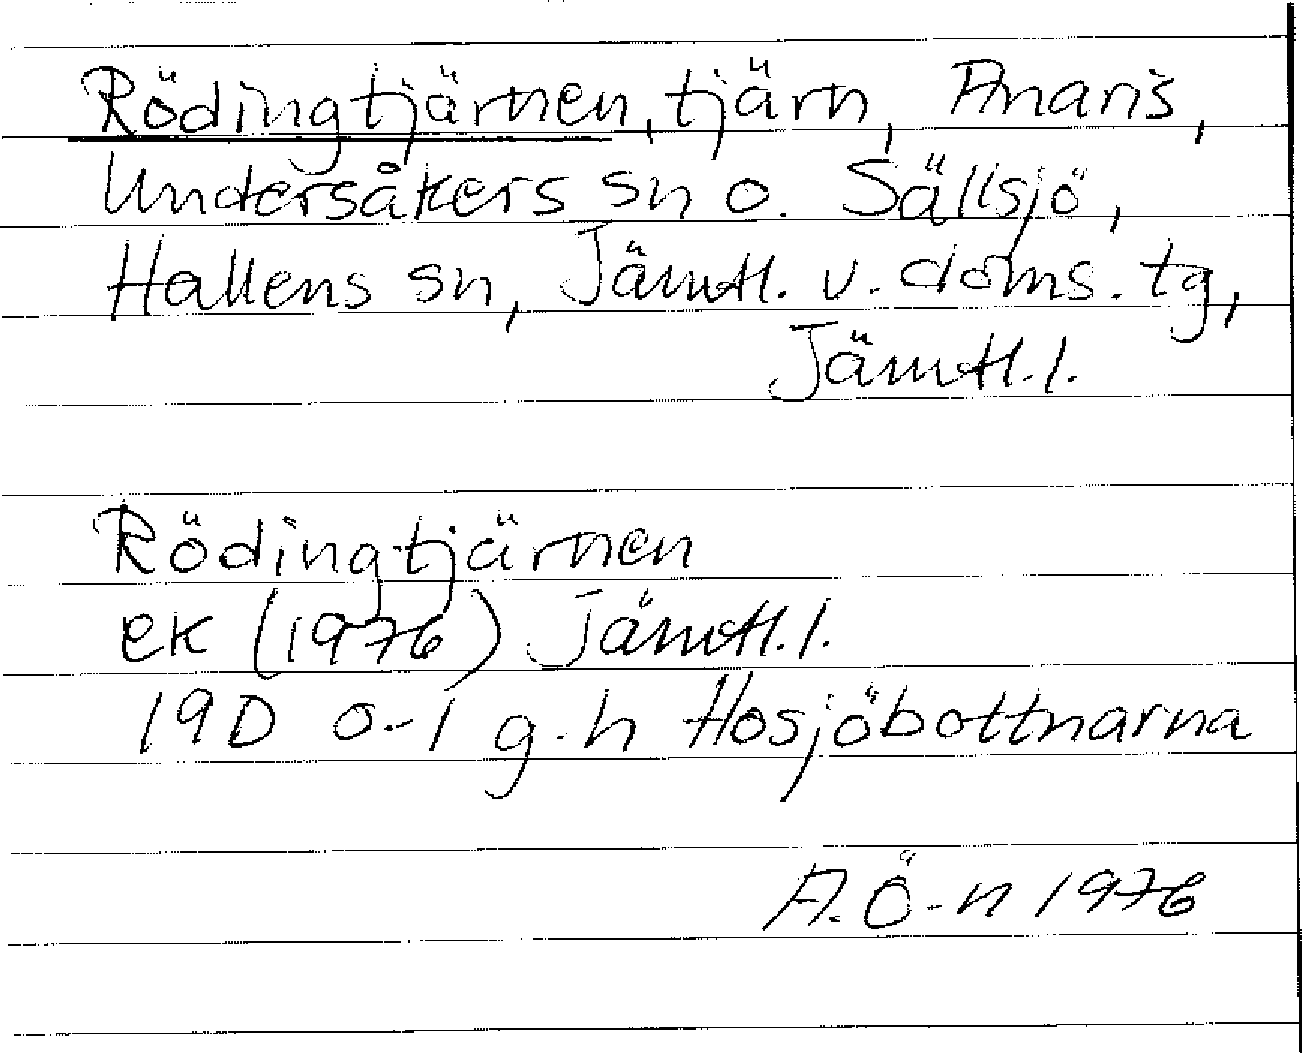 Rödingtjärnen, tjärn, Anariš,
Undersåkers sn o. Sällsjö,
Hallens sn, Jämtl. v. doms. tg,
Jämtl. l.
Rödingtjärnen
ek (1976) Jämtl. l.
19D 0-1 g-h Hosjöbottnarna
A. Ö-n 1976